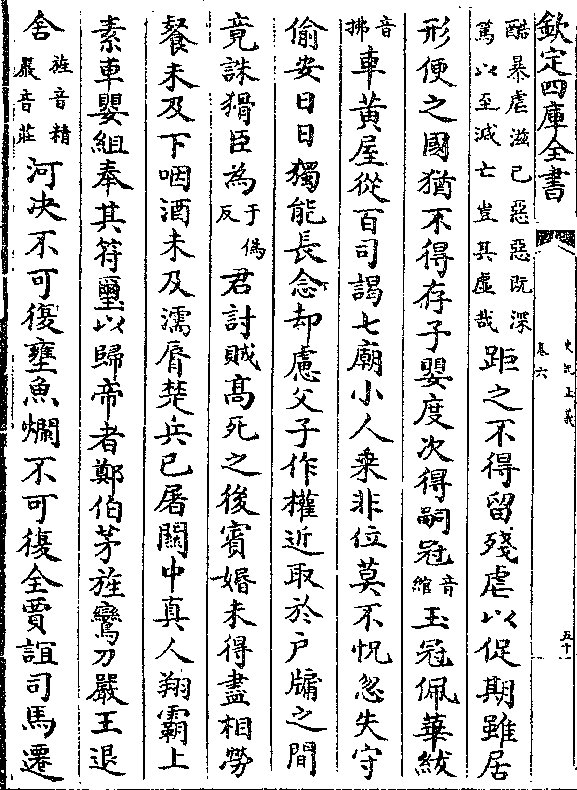 欽定四庫全書
史記正義
卷六
五十一
酷暴虐滋己惡惡既深
篤以至滅亡豈其虛哉
距之不得留殘虐以促期雖居
形便之國猶不得存子嬰度次得嗣冠音綰玉冠佩華紱
音拂車黃屋從百司謁七廟小人乗非位莫不怳忽失守
偷安日日獨能長念却慮父子作權近取於戶牖之間
竟誅猾臣為于偽反君討賊高死之後賓婚未得盡相勞
餐未及下咽酒未及濡脣楚兵已屠關中真人翔霸上
素車嬰組奉其符璽以歸帝者鄭伯茅旌鸞刀嚴王退
舍旌音精嚴音莊河決不可復壅魚爛不可復全賈誼司馬遷